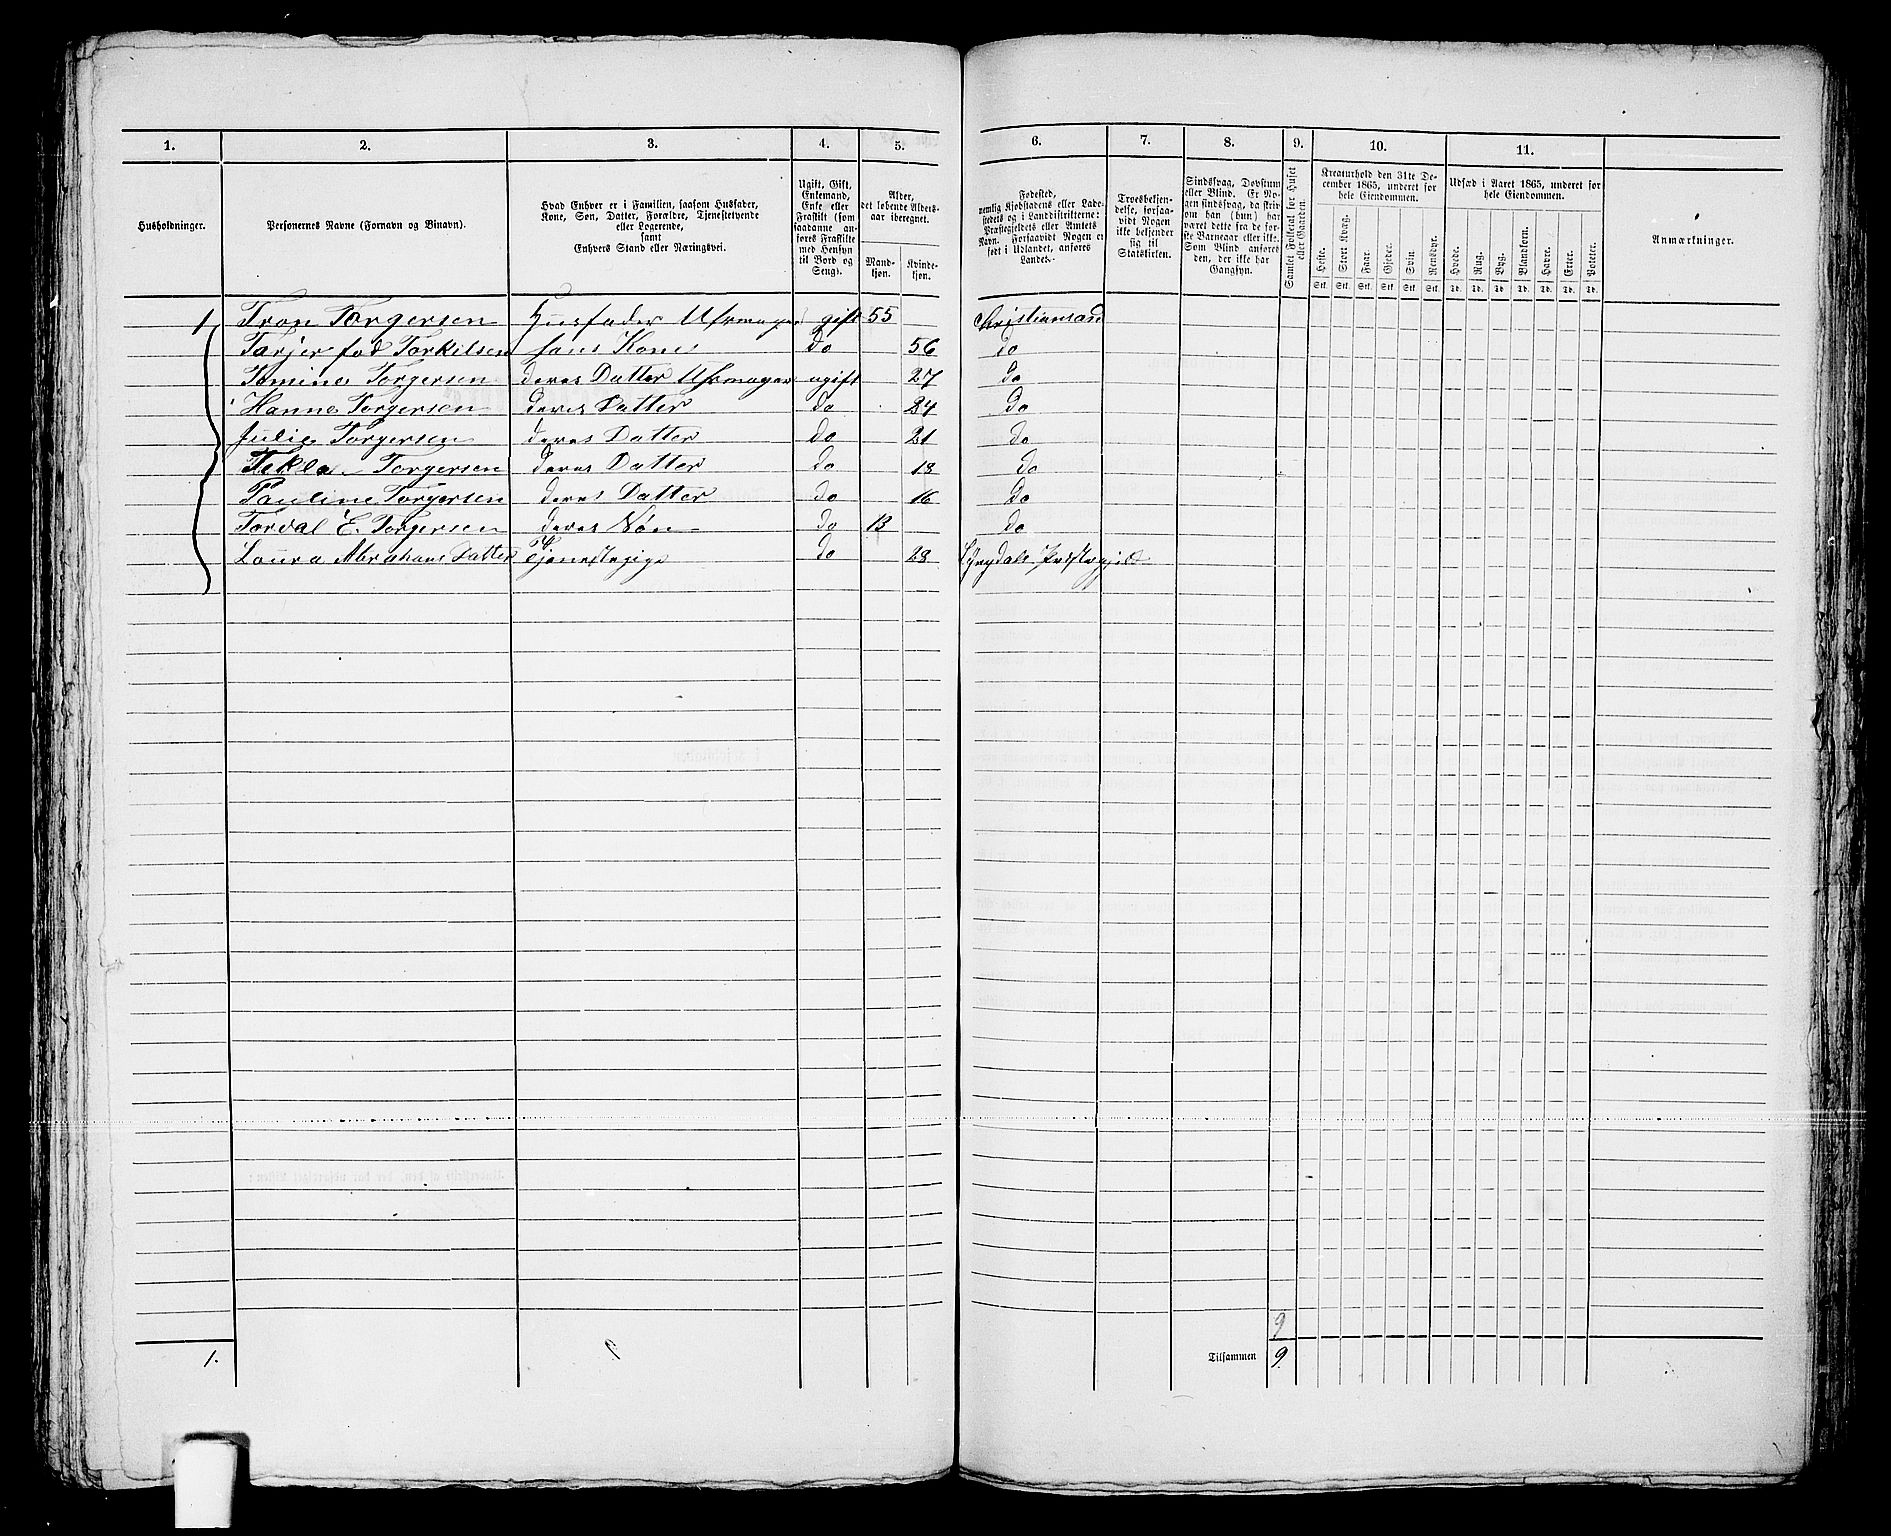 1. 2. 3. 4. 5. 6. 7. 8. 9. 10. 11.
Husholdninger.
Personernes Navne (Fornavn og Binavn).
Hvad Enhver er i Familien, saasom Husfader,
Kone, Søn, Datter, Forældre, Tjenestetyende
eller Logerende,
samt
Enhvers Stand eller Næringsvei.
Ugift, Gift,
Enkemand,
Enke eller
Fraskilt (som
saadanne an-
føres Fraskilte
med Hensyn
til Bord og
Seng).
Alder,
det løbende Alders-
aar iberegnet.
Mand-
kjøn.
Kvinde-
kjøn.
Fødested,
nemlig Kjøbstadens eller Lade-
stedets og i Landdistrikterne:
Præstegjeldets eller Amtets
Navn. Forsaavidt Nogen er
født i Udlandet, anføres
Landet.
Troesbekjen-
delse, forsaa-
vidt Nogen
ikke bekjender
sig til
Statskirken.
Sindssvag, Døvstum
eller Blind. Er No-
gen sindssvag, da skriv
om han (hun) har
været dette fra de før-
ste Barneaar eller ikke.
Som Blind anføres
den, der ikke har
Gangsyn.
Samlet Folketal for Huset
eller Gaarden.
Kreaturhold den 31te De-
cember 1865, underet for
hele Eiendommen.
Heste. Stort Kvæg. Faar. Gjeder. Svin. Rensdyr.
Stk. Stk. Stk. Stk. Stk. Stk.
Udsæd i Aaret 1865, underet for
hele Eiendommen.
Hvede. Rug. Byg. Blandkorn. Havre. Erter. Poteter.
Td. Td. Td. Td. Td. Td. Td.
Anmærkninger.
1 Tron Torgersen Husfader gift 55 Christiansand
Tarjer fød Torkilsen hans Kone do 56 do
Tomine Torgersen deres Datter ugift 27 do
Hanne Torgersen deres Datter do 24 do
Julie Torgersen deres Datter do 21 do
Tekla Torgersen deres Datter do 18 do
Pauline Torgersen deres Datter do 16 do
Tordal E. Torgersen deres Søn do 13 do
Loura Abrahams Datter Tjenestepige do 28
9
1. 9 Tilsammen 9.